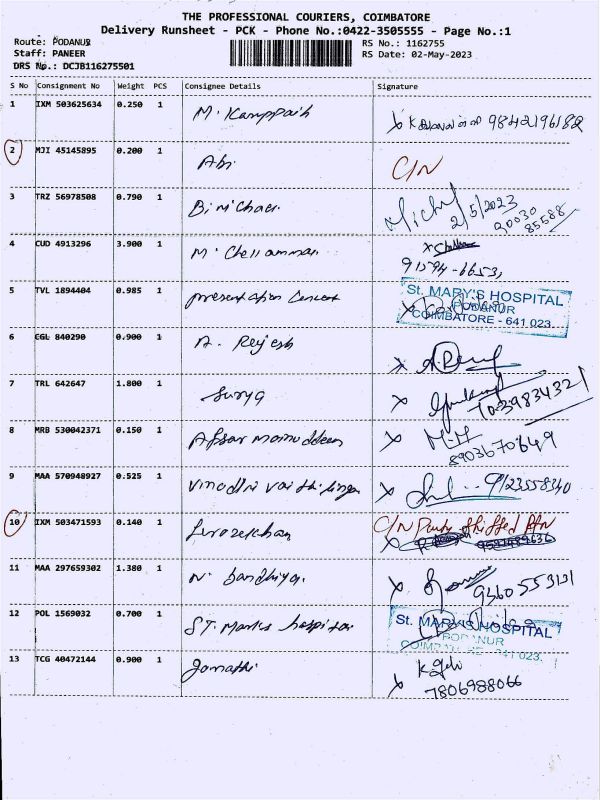 THE PROFESSIONAL COURIERS, COIMBATORE
Delivery Runsheet - PCK - Phone No.:0422-3505555 - Page No.:1
Route: PODANUR
Staff: PANEER
DRS No.: DCJB116275501
RS No.: 1162755
RS Date: 02-May-2023
S No Consignment No Weight PCS Consignee Details Signature
1 IXM 503625634 0.250 1 M. Karuppaih
9842196182
2 MJI 45145895 0.200 1 Abi C/N
3 TRZ 56978508 0.790 1
2/5/2023
90030
85588
4 CUD 4913296 3.900 1 M. Chellammal
91594-6653,
5 TVL 1894404 0.985 1 presentation Convent
St. MARY'S HOSPITAL
PODANUR
COIMBATORE - 641 023.
6 CGL 840290 0.900 1 A. Rejesh
7 TRL 642647 1.800 1 Surya
8 MRB 530042371 0.150 1 Afsar
M-M
8903670649
9 MAA 570948927 0.525 1 Vinodhi Vaithilingam 9123558340
10 IXM 503471593 0.140 1 Firozekhan C/N Party Shifted
11 MAA 297659302 1.380 1 N. Sandhiya.
12 POL 1569032 0.700 1 ST. Marks hospital
St. MARY'S HOSPITAL
PODANUR
641 023.
13 TCG 40472144 0.900 1 Jomathi
7806988066